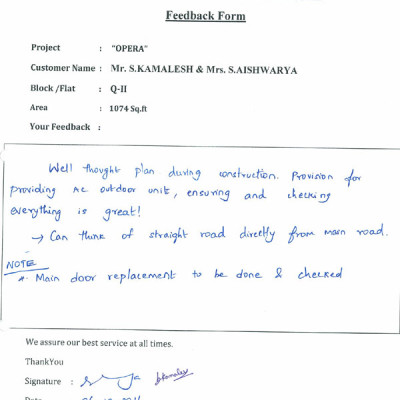 Feedback Form
Project : "OPERA"
Customer Name : Mr. S.KAMALESH & Mrs. S.AISHWARYA
Block /Flat : Q-II
Area : 1074 Sq.ft
Your Feedback :
Well thought plan during construction. Provision for
providing AC outdoor unit, ensuring and checking
everything is great!
→ Can think of straight road directly from main road.
NOTE
* Main door replacement to be done & checked
We assure our best service at all times.
ThankYou
Signature :